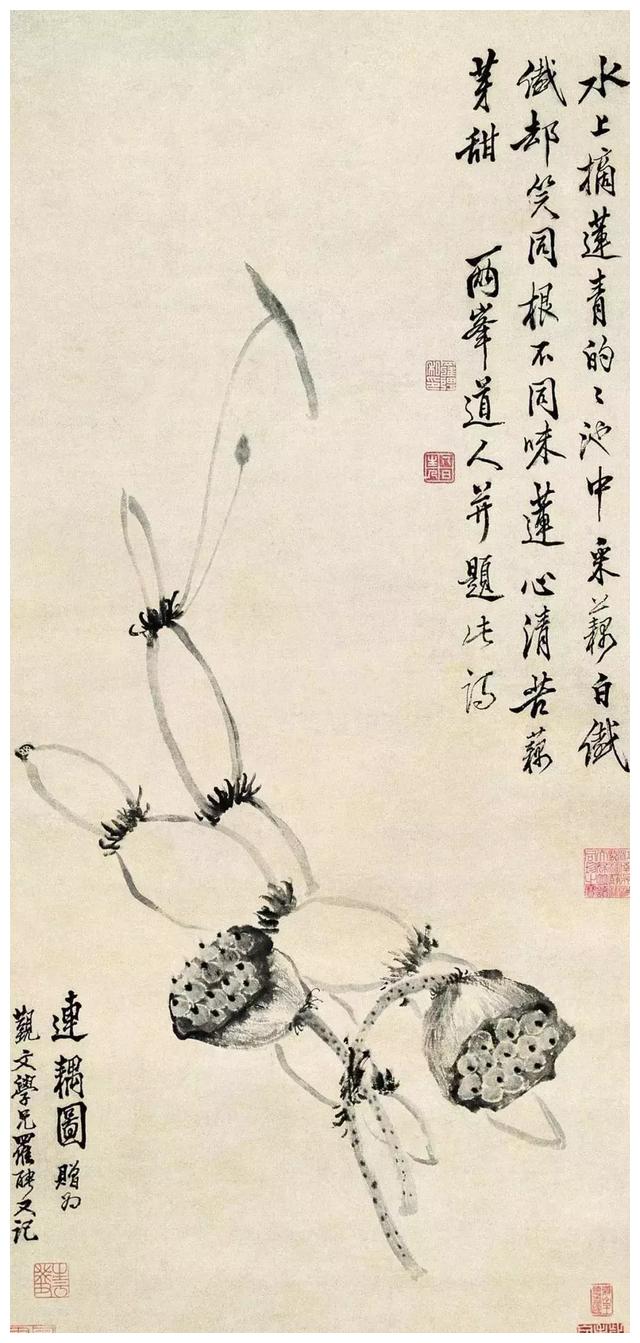 水上摘蓮青的〻池中采藕白纖
纖却笑同根不同味蓮心清苦藕
芽甜 兩峯道人并題此詩
連耦圖 贈為
觀文學兄羅聘又記